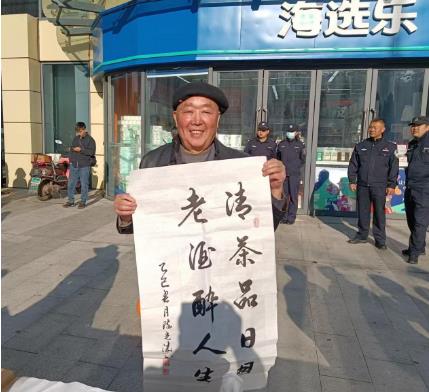 海选乐
清茶品日
老酒醉人生
乙巳